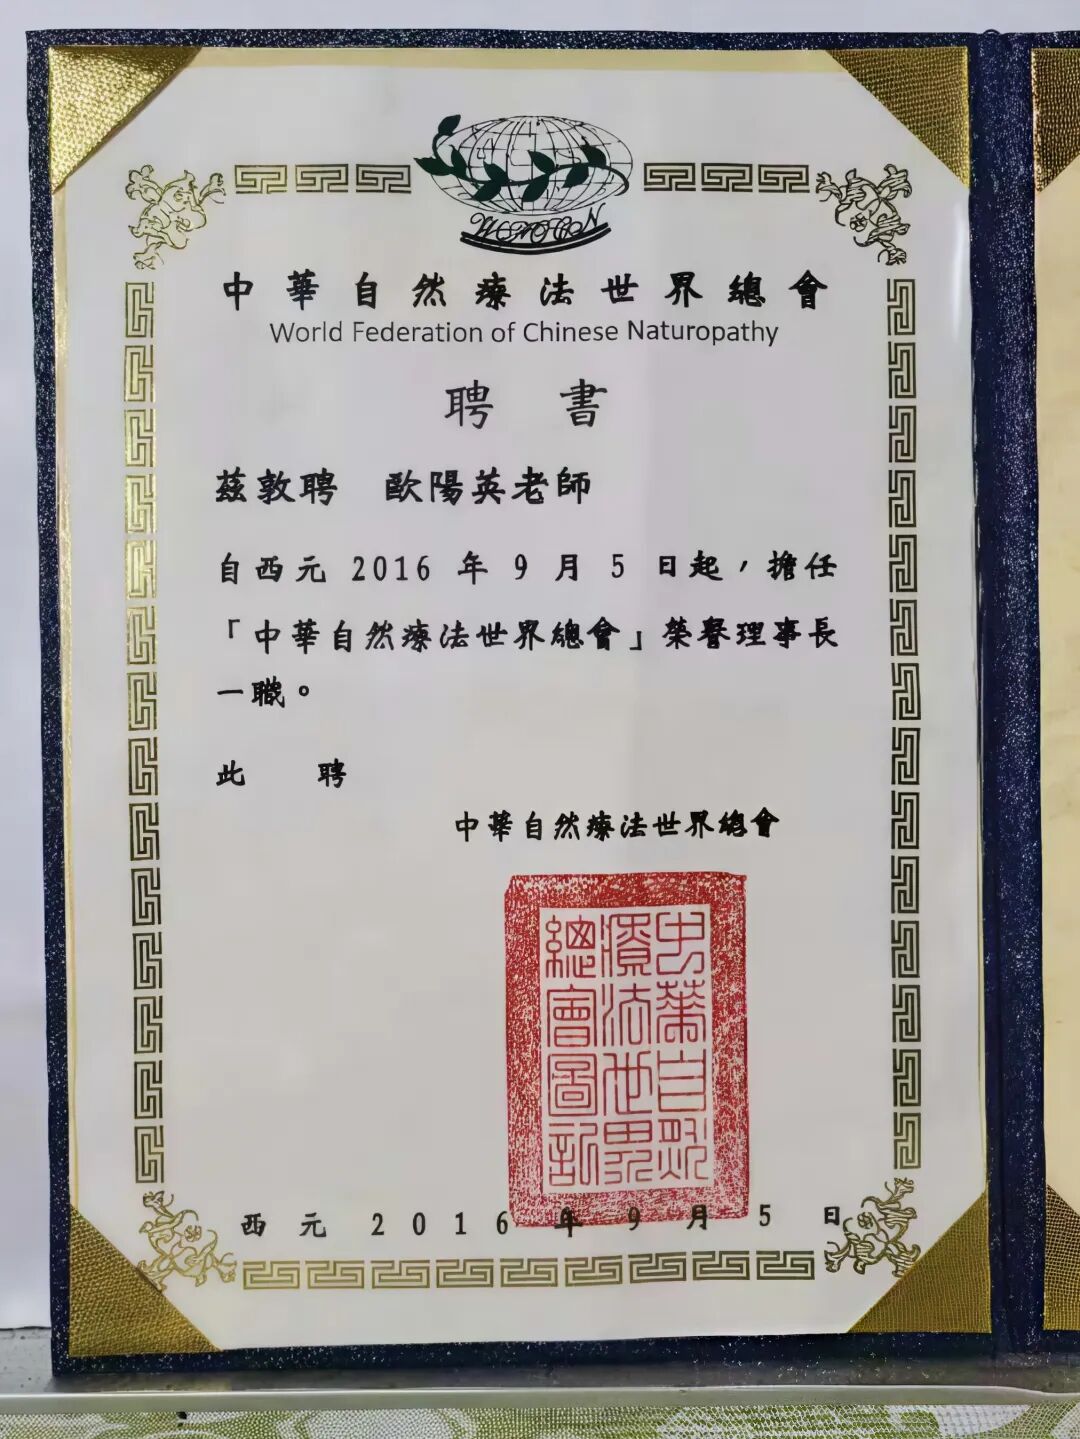 中華自然療法世界總會
World Federation of Chinese Naturopathy
聘 書
茲敦聘 歐陽英老師
自西元 2016 年 9 月 5 日起，擔任
「中華自然療法世界總會」榮譽理事長
一職。
此 聘
中華自然療法世界總會
中華自然
療法世界
總會圖記
西元 2016 年 9 月 5 日